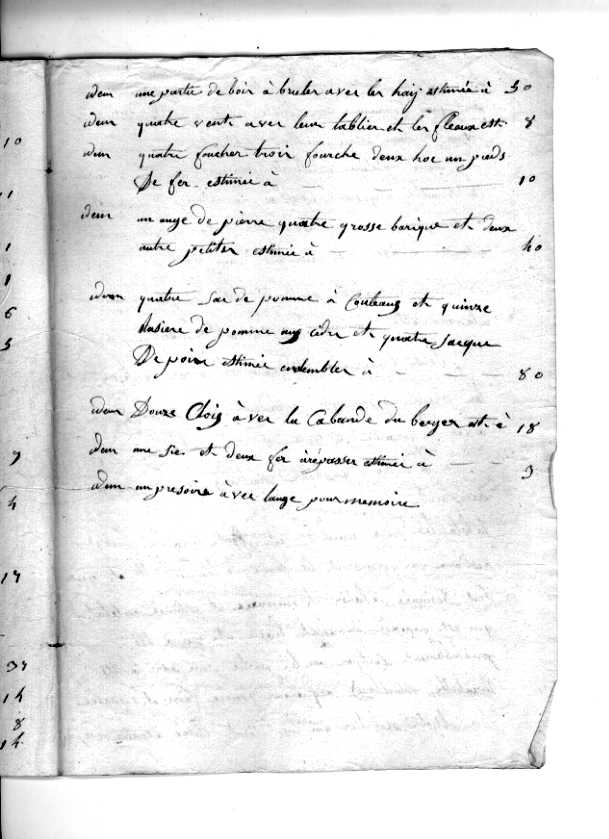 idem une partie de boir à bruler aver ler haij estimée à 50
idem quatre vent aver leur tablier et ler fleaux est. 8
idem quatre foucher troir fourche deux hoc un pieds
De fer estimée à 10
idem un auge de pierre quatre grosse barique et deux
autre petiter estimée à 40
idem quatre sac de pomme à Couteaux et quinze
Rasiere de pomme aux cidre et quatre sacque
De poire estimée ensembler à 80
idem Douze Cloij àver la Cabande du berger est. à 18
idem une sie et deux fer àrépasser estimée à 3
idem un presoire àvec lauge pour memoire
10
1
1
6
5
9
4
17
37
14
8
14